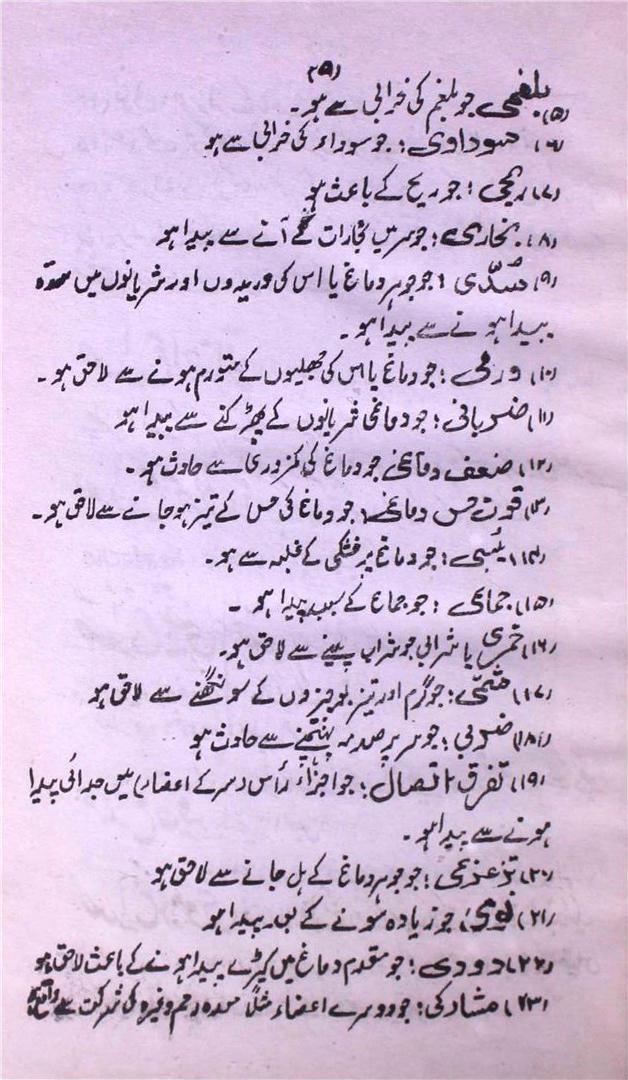 (۳۵)
(۵) بلغمی جو بلغم کی خرابی سے ہو۔
(۶) سوداوی؛ جو سوداء کی خرابی سے ہو
(۷) ریحی؛ جو ریح کے باعث ہو
(۸) بخاری؛ جو سر میں بخارات کے آنے سے پیدا ہو
(۹) سُدّی؛ جو جوہر دماغ یا اس کی وریدوں اور شریانوں میں سدّہ
پیدا ہونے سے پیدا ہو۔
(۱۰) ورمی؛ جو دماغ یا اس کی جھلیوں کے متورم ہونے سے لاحق ہو۔
(۱۱) ضربانی؛ جو دماغی شریانوں کے پھڑکنے سے پیدا ہو
(۱۲) ضعف دماغی جو دماغ کی کمزوری سے حادث ہو۔
(۱۳) قوت حس دماغی؛ جو دماغ کی حس کے تیز ہو جانے سے لاحق ہو۔
(۱۴) یُبسی؛ جو دماغ پر خشکی کے غلبہ سے ہو۔
(۱۵) جماعی؛ جو جماع کے سبب پیدا ہو۔
(۱۶) خمری یا شرابی جو شراب پینے سے لاحق ہو۔
(۱۷) شمّی؛ جو گرم اور تیز بو چیزوں کے سونگھنے سے لاحق ہو
(۱۸) ضربی؛ جو سر پر صدمہ پہنچنے سے حادث ہو
(۱۹) تفرق اتصال؛ جو اجزاء راس (سر کے اعضاء) میں جدائی پیدا
ہونے سے پیدا ہو۔
(۲۰) تزعزعی؛ جو جوہر دماغ کے ہل جانے سے لاحق ہو
(۲۱) نومی؛ جو زیادہ سونے کے بعد پیدا ہو
(۲۲) دودی؛ جو مقدم دماغ میں کیڑے پیدا ہونے کے باعث لاحق ہو
(۲۳) مشارکی؛ جو دوسرے اعضاء مثلاً معدہ رحم وغیرہ کی شرکت سے